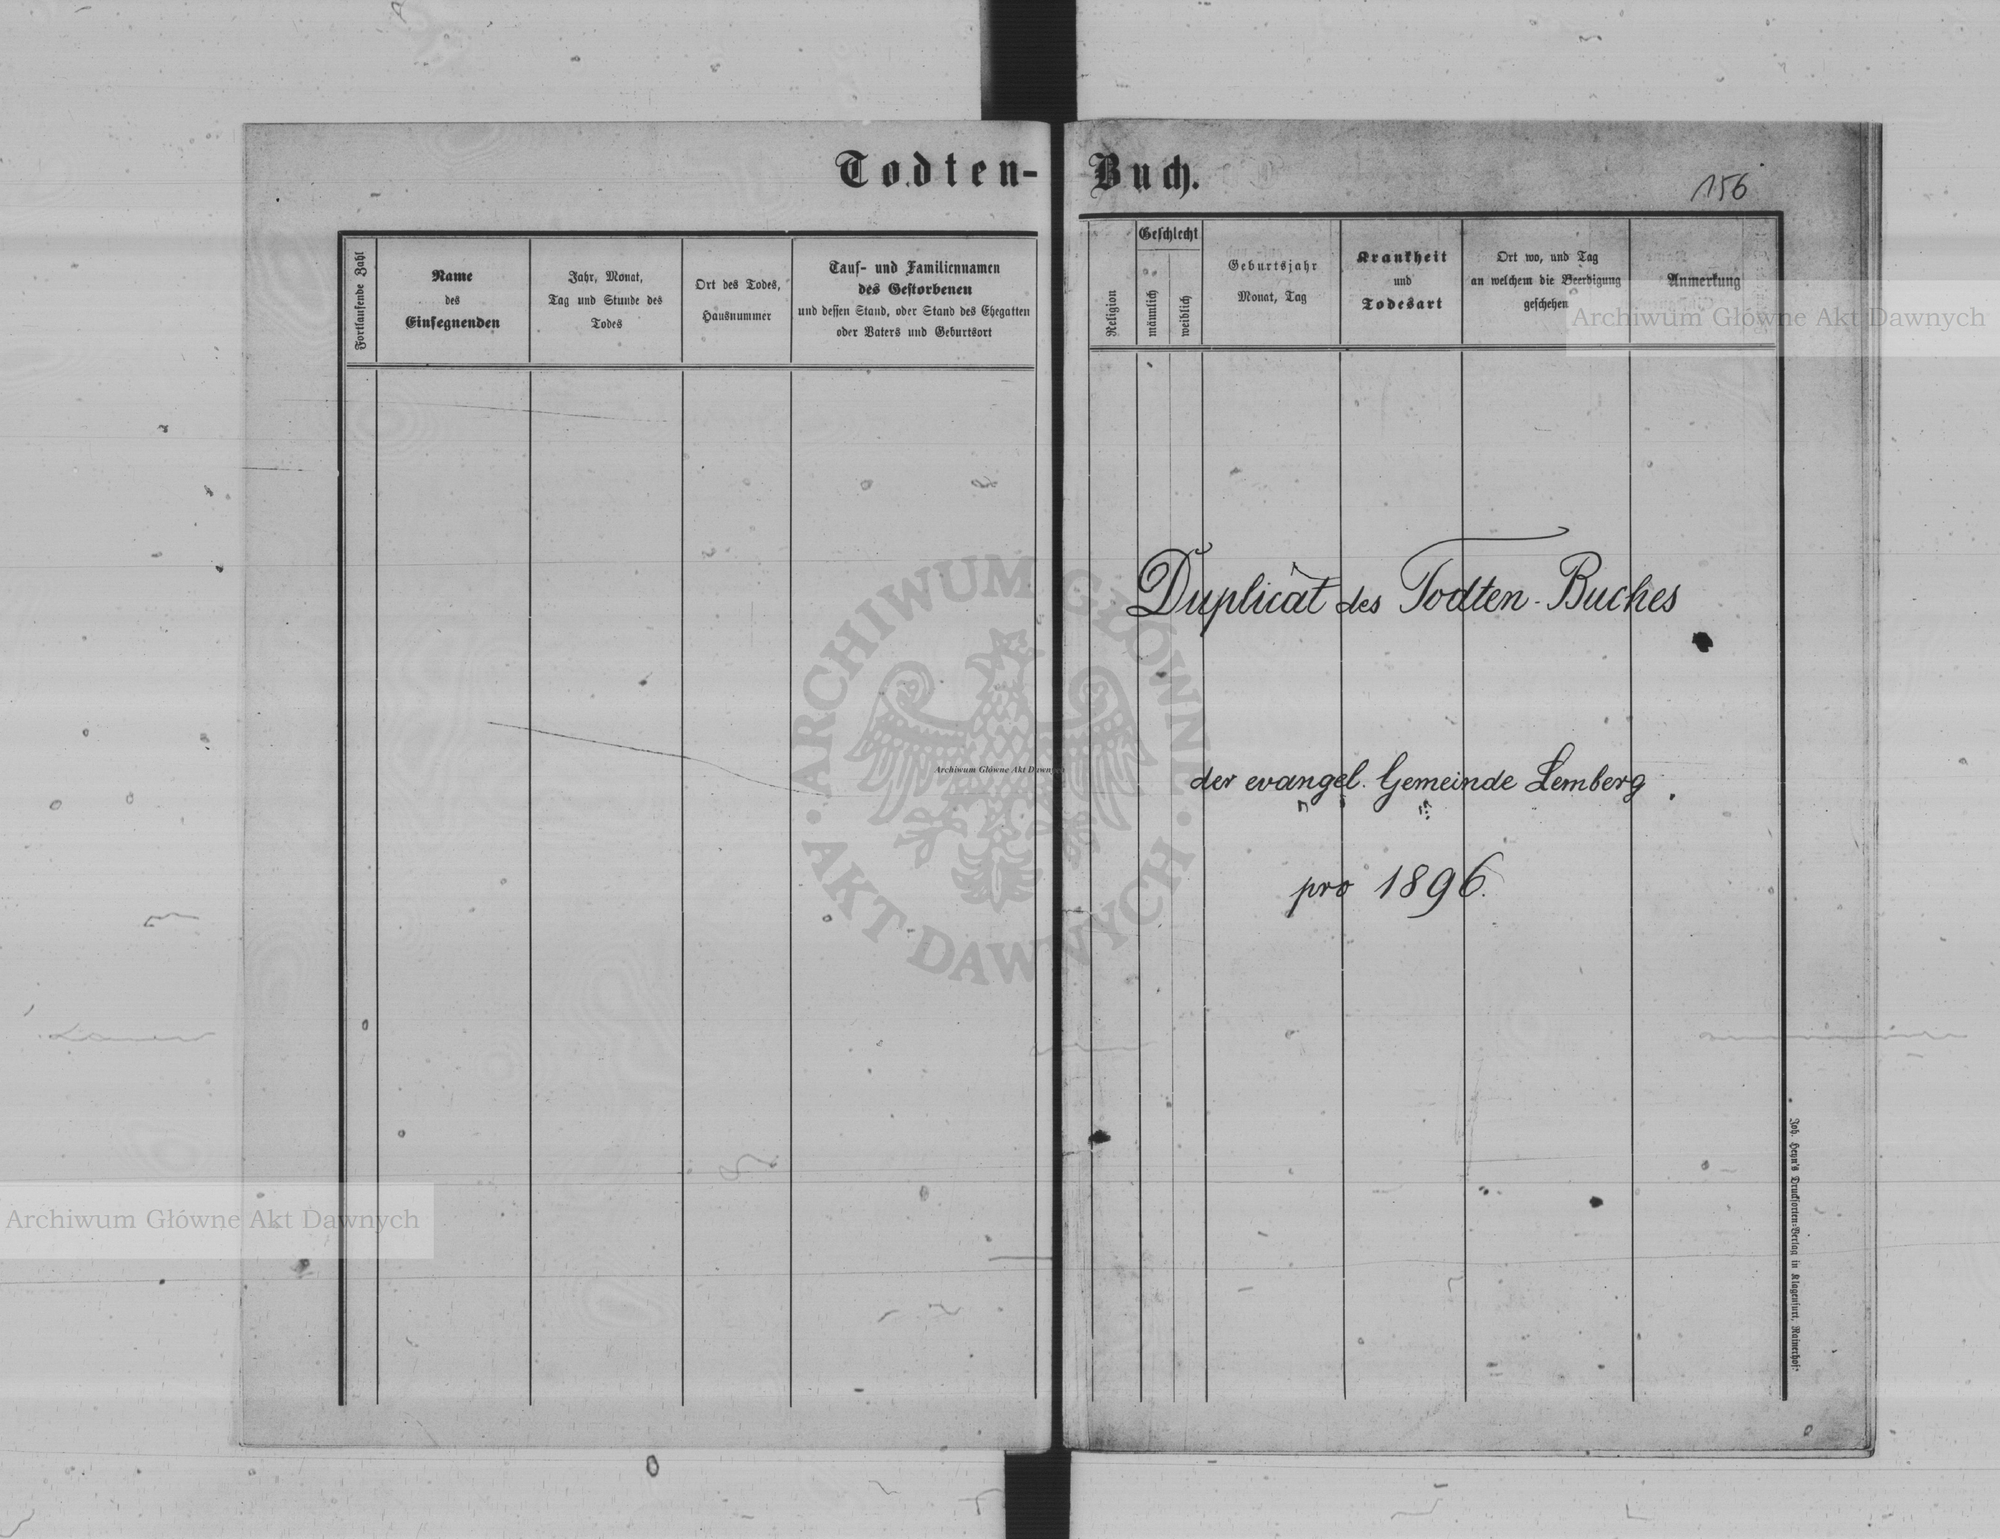 Todten-Buch.
156
Fortlaufende Zahl
Name
des
Einsegnenden
Jahr, Monat,
Tag und Stunde des
Todes
Ort des Todes,
Hausnummer
Tauf- und Familiennamen
des Gestorbenen
und dessen Stand, oder Stand des Ehegatten
oder Vaters und Geburtsort
Religion
Geschlecht
männlich
weiblich
Geburtsjahr
Monat, Tag
Krankheit
und
Todesart
Ort wo, und Tag
an welchem die Beerdigung
geschehen
Anmerkung
Archiwum Główne Akt Dawnych
Duplicat des Todten-Buches
der evangel. Gemeinde Lemberg.
pro 1896.
ARCHIWUM GŁÓWNE
AKT DAWNYCH
Archiwum Główne Akt Dawnych
Archiwum Główne Akt Dawnych
Joh. Heyn's Drucksorten-Verlag in Klagenfurt, Rainerhof.